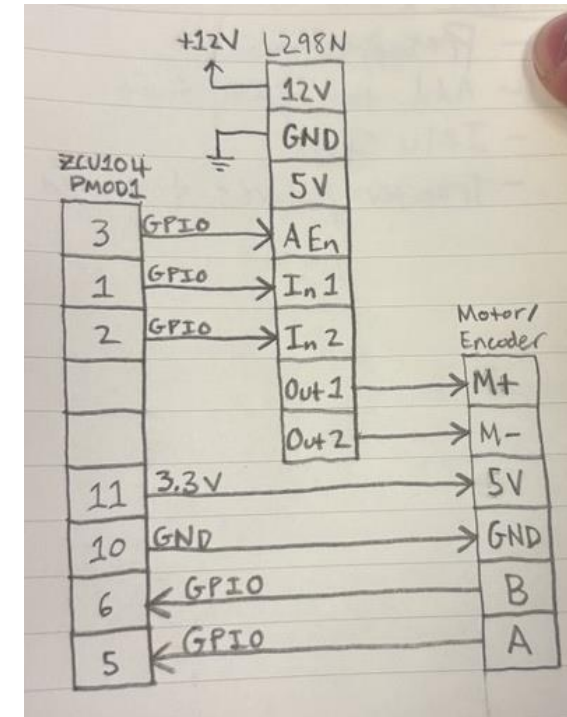 +12V L298N
12V
GND
5V
ZCU104
PMOD1
3 GPIO A En
1 GPIO In 1
2 GPIO In 2
Motor/
Encoder
Out 1 M+
Out 2 M-
11 3.3V 5V
10 GND GND
6 GPIO B
5 GPIO A